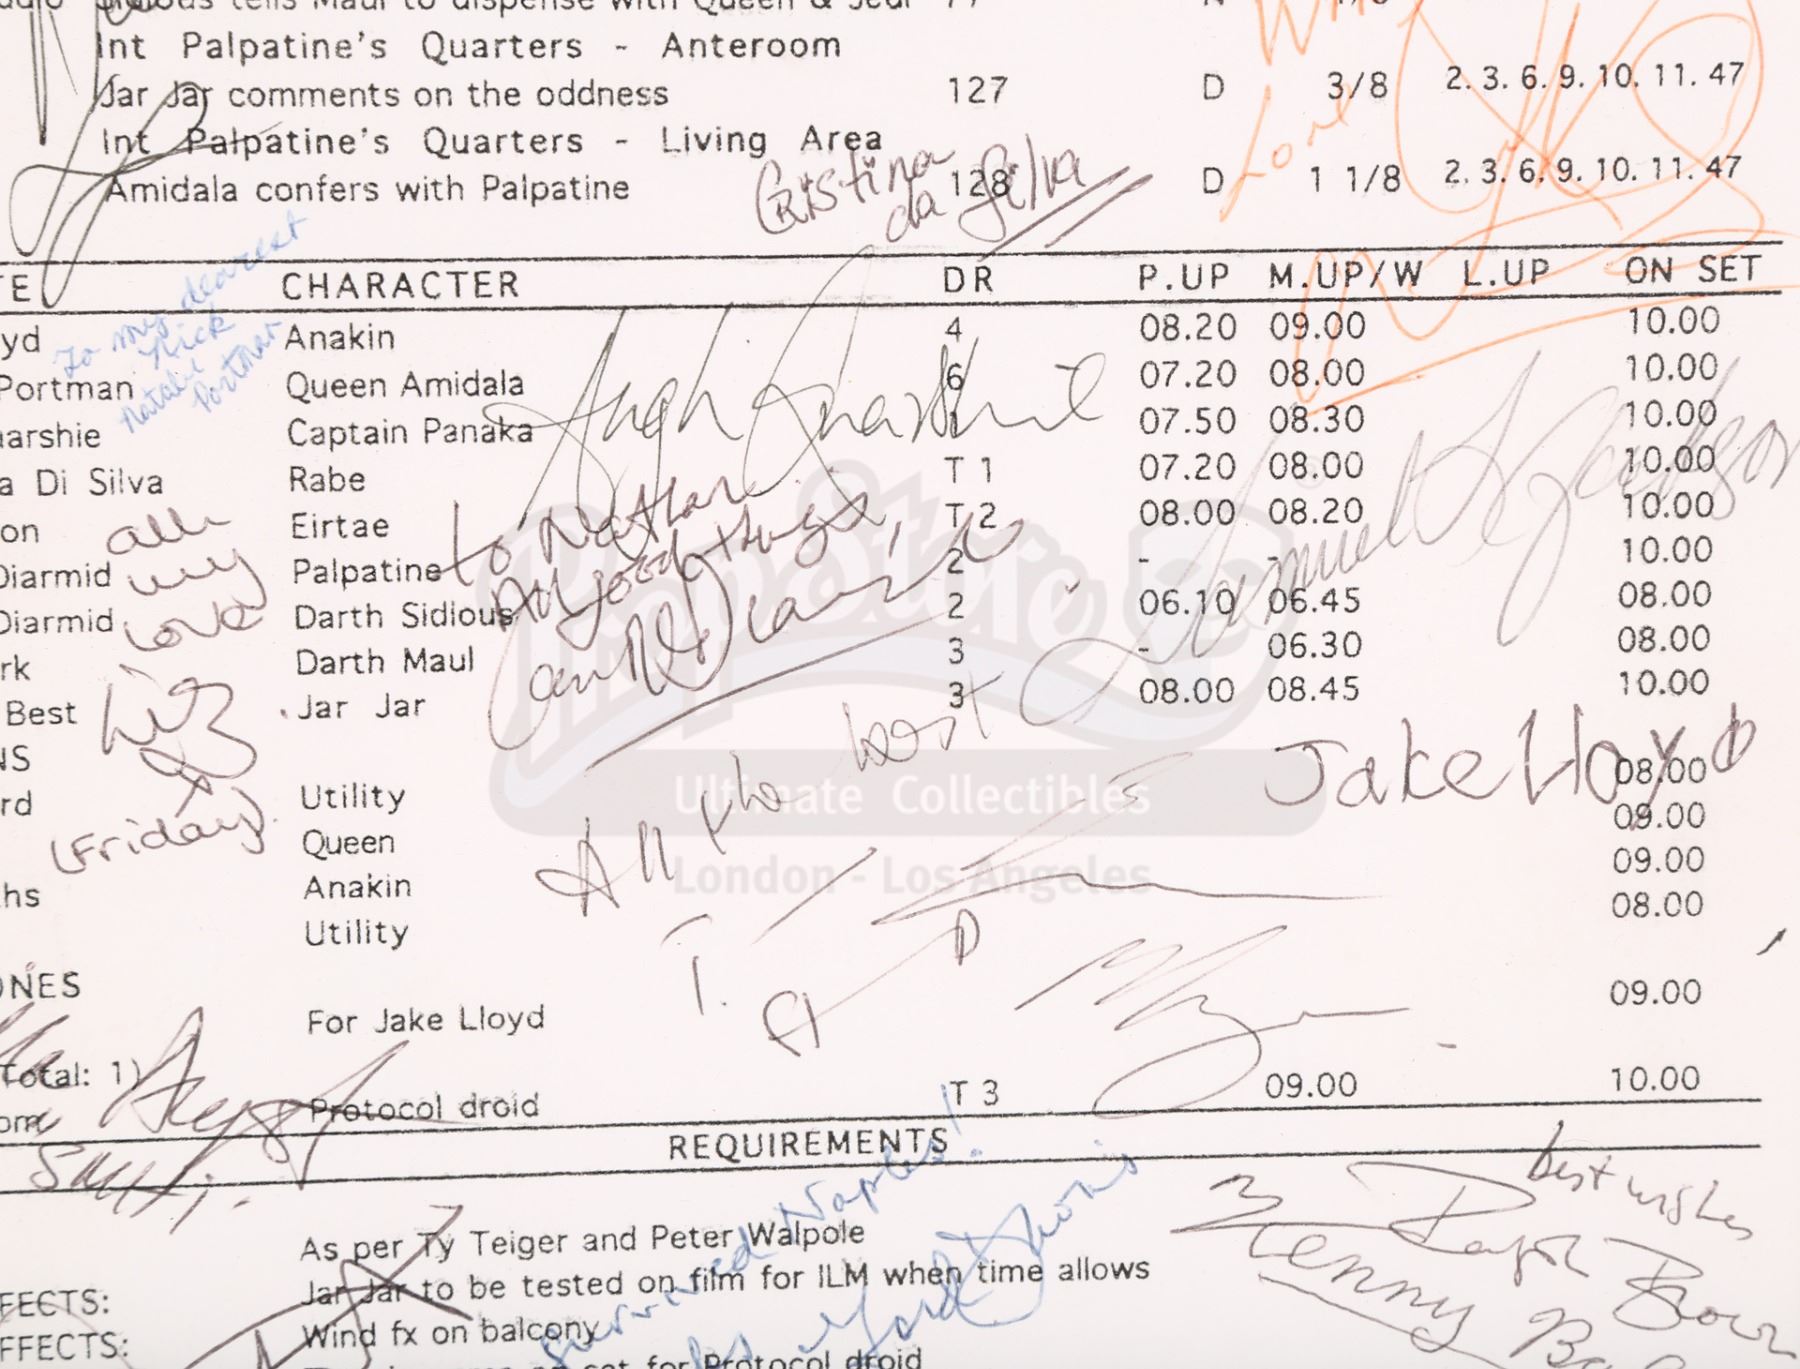 tells Maul to dispense with Queen & Jedi 77 N
Int Palpatine's Quarters - Anteroom
Jar Jar comments on the oddness 127 D 3/8 2. 3. 6. 9. 10. 11. 47
Int Palpatine's Quarters - Living Area
Amidala confers with Palpatine 128 D 1 1/8 2. 3. 6. 9. 10. 11. 47
Cristina
da Silva
TE CHARACTER DR P.UP M.UP/W L.UP ON SET
yd Anakin 4 08.20 09.00 10.00
Portman Queen Amidala 6 07.20 08.00 10.00
uarshie Captain Panaka 1 07.50 08.30 10.00
a Di Silva Rabe T 1 07.20 08.00 10.00
on Eirtae T 2 08.00 08.20 10.00
Diarmid Palpatine 2 - - 10.00
Diarmid Darth Sidious 2 06.10 06.45 08.00
rk Darth Maul 3 - 06.30 08.00
Best Jar Jar 3 08.00 08.45 10.00
NS
rd Utility 08.00
Queen 09.00
hs Anakin 09.00
Utility 08.00
ONES
For Jake Lloyd 09.00
Total: 1)
om Protocol droid T 3 09.00 10.00
REQUIREMENTS
As per Ty Teiger and Peter Walpole
FECTS: Jar Jar to be tested on film for ILM when time allows
FFECTS: Wind fx on balcony
set for Protocol droid
To my dearest
Nick
Natalie
Portman
Hugh Quarshie
to Nathan
All good things
Ian McDiarmid
Samuel L Jackson
all
my
love
Liz
x
(Friday)
All the best
Jake Lloyd
survived Naples!
best wishes
Kenny Ba
PropStore
Ultimate Collectibles
London - Los Angeles